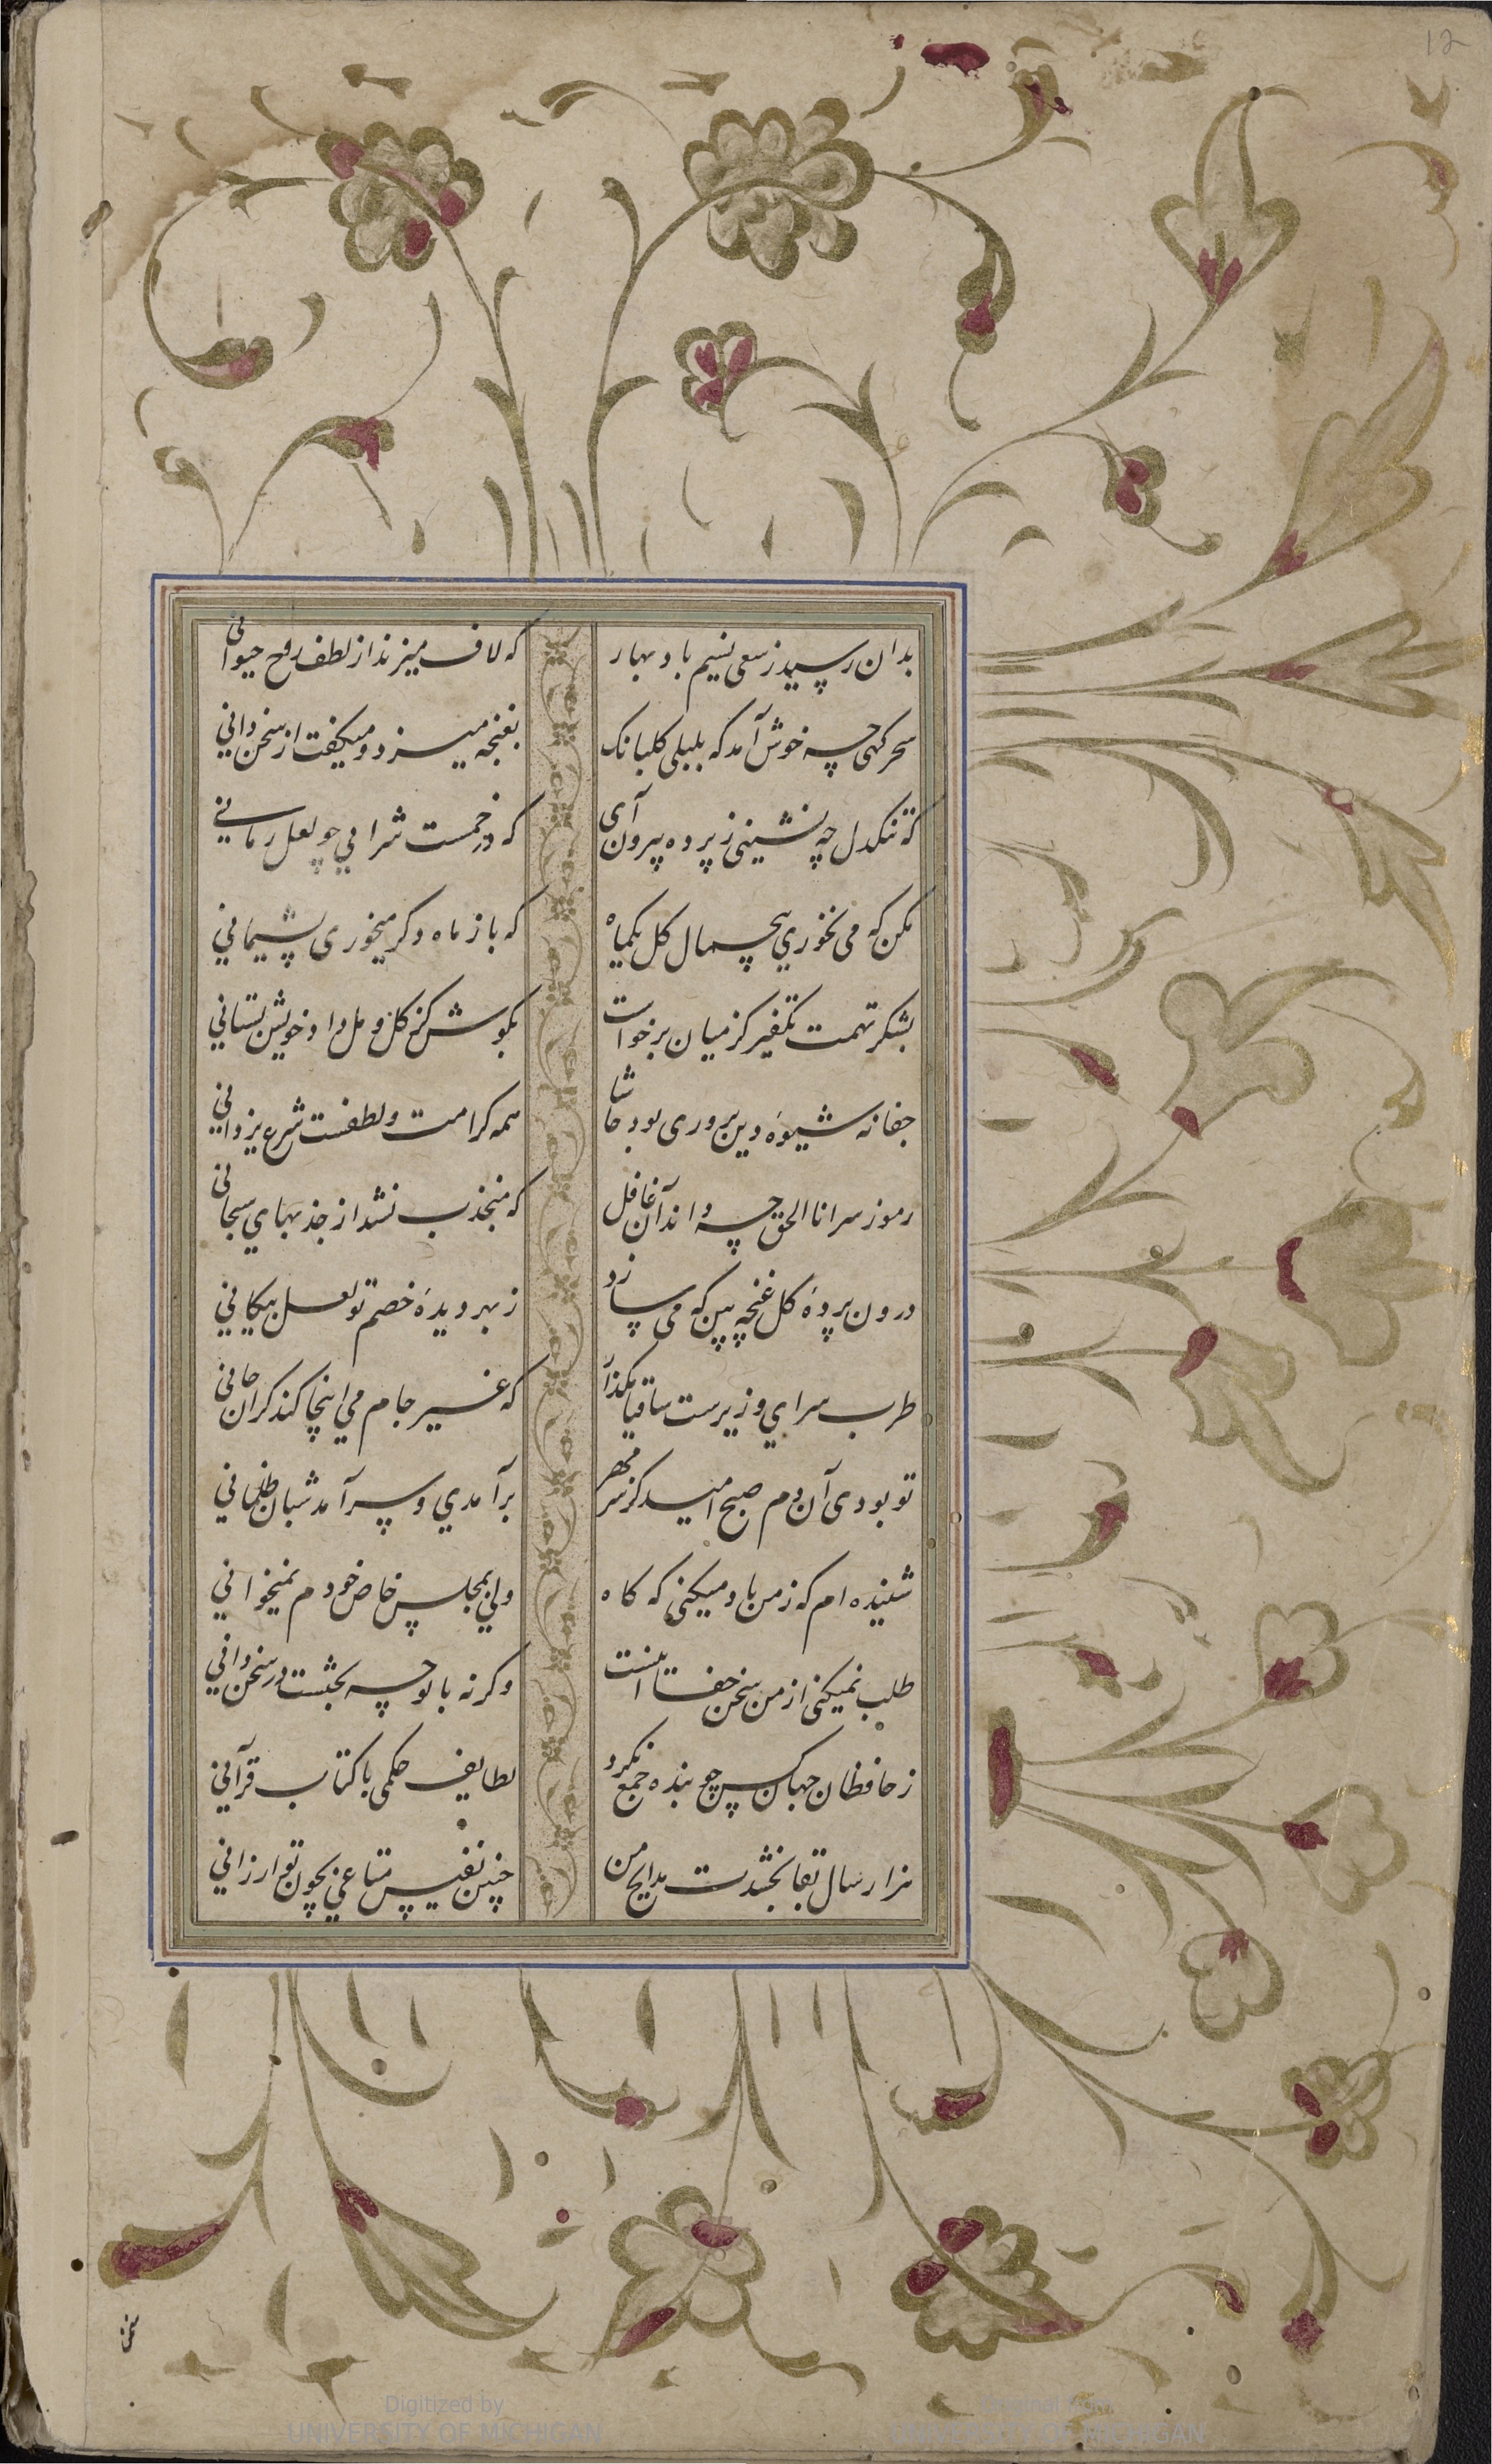 12
بدان رسید ز سعی نسیم باد بهار که لاف میزند از لطف روح حیوانی
سحرکهی چه خوش آمد که بلبلی کلبانک بغنچه میزد و میکفت از سخن دانی
که تنکدل چه نشینی ز پرده بیرون آی که در خمست شرابی چو لعل رمانی
مکن که می نخوری بجمال کل یکماه که باز ماه دکر میخوری پشیمانی
بشکر تهمت تکفیر کز میان برخواست بکوش کز کل و مل داد خویش بستانی
جفا نه شیوهٔ دین پروری بود حاشا همه کرامت و لطفست شرع یزدانی
رموز سر انا الحق چه داند آن غافل که منجذب نشد از جذبهای سبحانی
درون پردهٔ کل غنچه بین که می سازد ز بهر دیدهٔ خصم تو لعل پیکانی
طرب سرای وزیرست ساقیا مکذار که غیر جام می اینجا کند کران جانی
تو بودی آن دم صبح امید کز سر مهر برآمدی و سر آمد شبان ظلمانی
شنیده ام که ز من یاد میکنی که کاه ولی بمجلس خاص خودم نمیخوانی
طلب نمیکنی از من سخن جفا اینست وکرنه با تو چه بحثست در سخن دانی
ز حافظان جهان کس چو بنده جمع نکرد لطایف حکمی با کتاب قرآنی
هزار سال بقا بخشدت مدایح من چنین نفیس متاعی بچون تو ارزانی
سخن
Digitized by
UNIVERSITY OF MICHIGAN
Original from
UNIVERSITY OF MICHIGAN